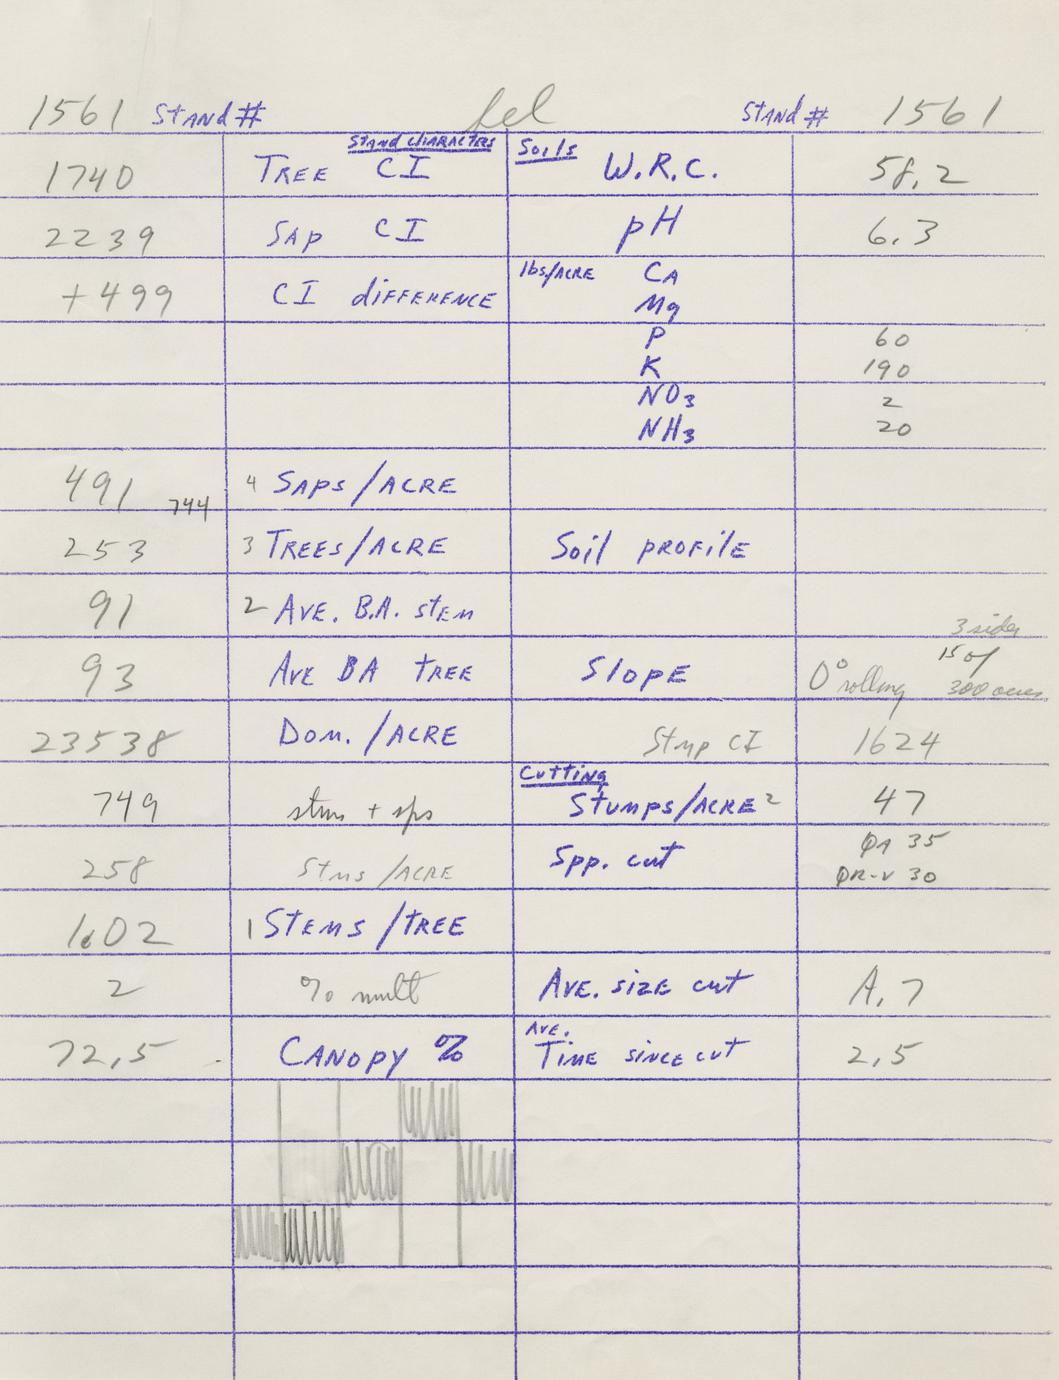 1561 Stand # fel Stand # 1561
Stand Characters Soils
1740 Tree CI W.R.C. 58.2
2239 Sap CI pH 6.3
+499 CI difference lbs/acre Ca
Mg
P 60
K 190
NO3 2
NH3 20
491 744 4 Saps/acre
253 3 Trees/acre Soil profile
91 2 Ave. B.A. stem
3 sides
93 Ave BA tree Slope 0° rolling 15 of
300 acres
23538 Dom./acre Stmp CI 1624
Cutting
749 stms + sps Stumps/acre 2 47
258 Stms/acre Spp. cut QA 35
QR-V 30
1.02 1 Stems/tree
2 % mult Ave. size cut A.7
72.5 Canopy % Ave. Time since cut 2.5